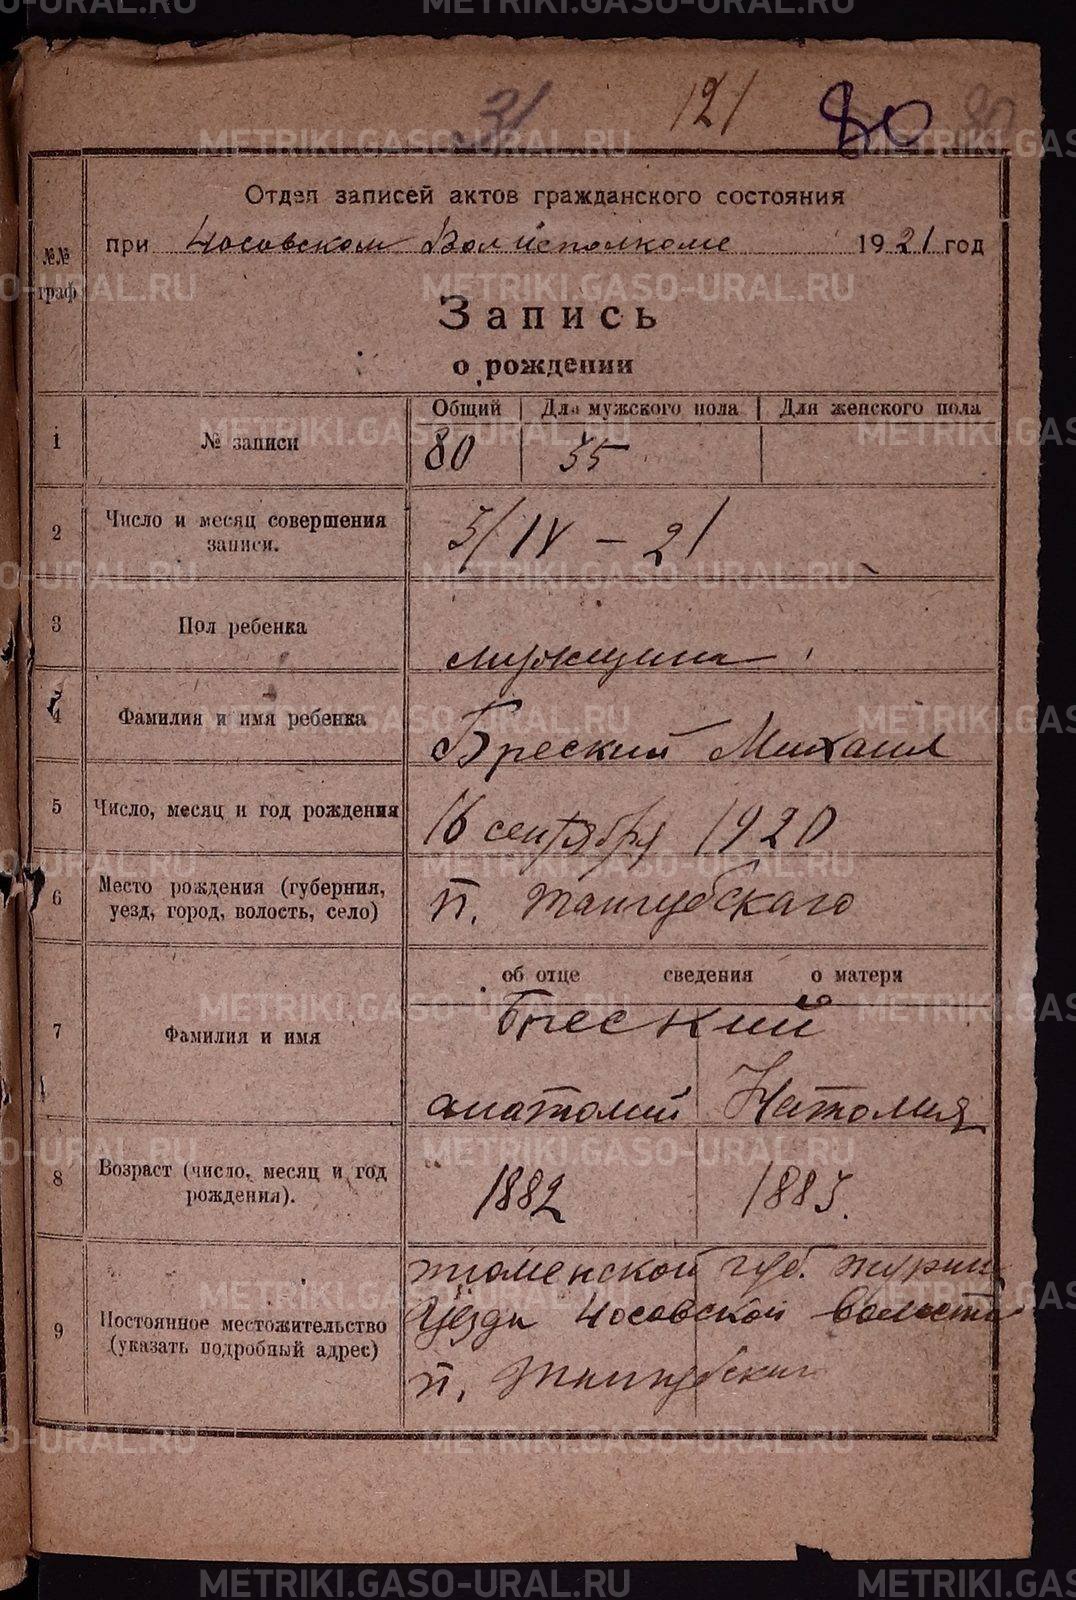 31 121 80 80
Отдел записей актов гражданского состояния
при Носовском Волисполкоме 1921 год
№№ граф
Запись
о рождении
Общий Для мужского пола Для женского пола
1 № записи 80 35
2 Число и месяц совершения записи. 5/IV – 21
3 Пол ребенка мужщина
4 Фамилия и имя ребенка Бреский Михаил
5 Число, месяц и год рождения 16 сентября 1920
6 Место рождения (губерния, уезд, город, волость, село) п.
об отце сведения о матери
7 Фамилия и имя Бреский
анатолий Натолия
8 Возраст (число, месяц и год рождения). 1882 1883.
9 Постоянное местожительство (указать подробный адрес) тюменской губ. турин.
Уезда Носовской волости
п.
METRIKI.GASO-URAL.RU